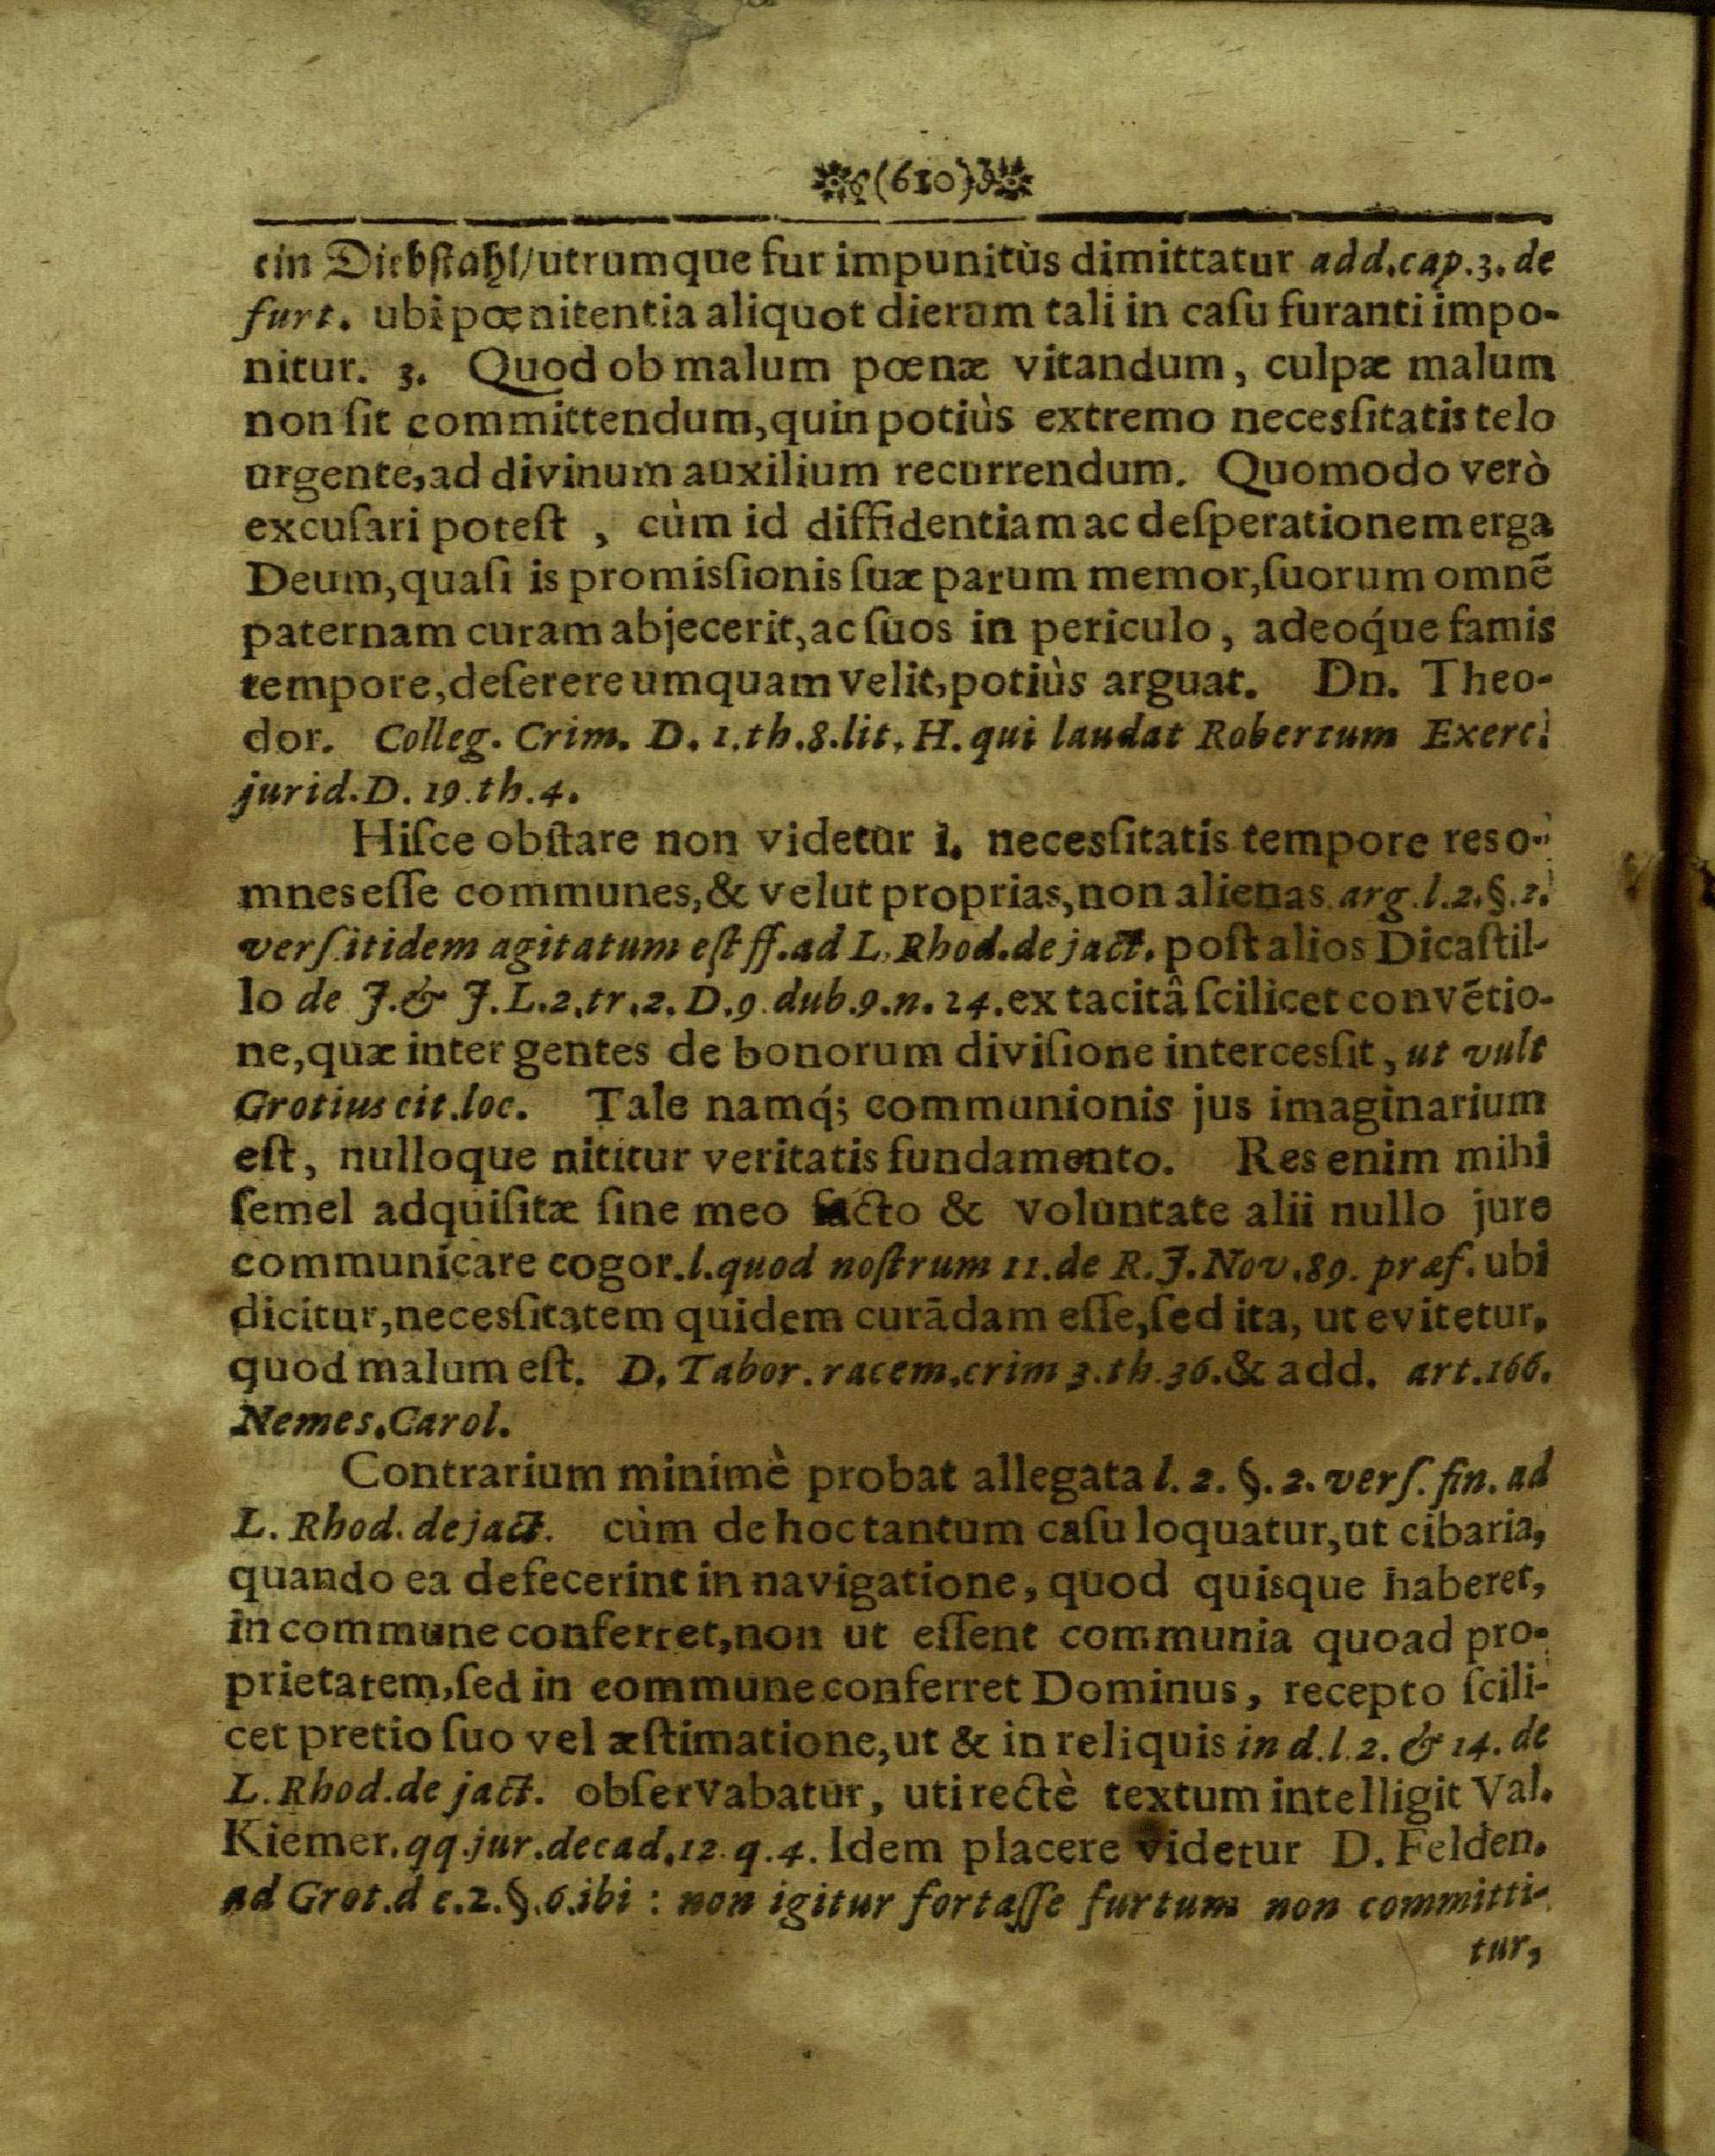 (610)
ein Diebſtahl/utrumque fur impunitùs dimittatur add.cap.3.de
furt. ubi pœnitentia aliquot dierum tali in caſu furanti impo-
nitur. 3. Quod ob malum pœnæ vitandum, culpæ malum
non ſit committendum,quin potiùs extremo necesſitatis telo
urgente,ad divinum auxilium recurrendum. Quomodo verò
excuſari poteſt , cùm id diffidentiam ac deſperationem erga
Deum,quaſi is promisſionis ſuæ parum memor,ſuorum omnē
paternam curam abjecerit,ac ſuos in periculo, adeoq́ue famis
tempore,deſerere umquam velit,potiùs arguat. Dn. Theo-
dor. Colleg. Crim. D. 1.th.8.lit. H. qui laudat Robertum Exerc.
jurid.D. 19.th.4.
Hiſce obſtare non videtur 1. necesſitatis tempore res o-
mnes eſſe communes,& velut proprias,non alienas. arg.l.2.§.2.
verſ.itidem agitatum eſt ff.ad L.Rhod.de jact. poſt alios Dicaſtil-
lo de J.& J.L.2.tr.2.D.9.dub.9.n.24.ex tacitâ ſcilicet convētio-
ne,quæ inter gentes de bonorum diviſione intercesſit, ut vult
Grotius cit.loc. Tale namq́; communionis jus imaginarium
eſt, nulloque nititur veritatis fundamento. Res enim mihi
ſemel adquiſitæ ſine meo facto & voluntate alii nullo jure
communicare cogor.l.quod noſtrum 11.de R.J.Nov.89. præf. ubi
dicitur,necesſitatem quidem curādam eſſe,ſed ita, ut evitetur,
quod malum eſt. D. Tabor. racem.crim 3.th.36.& add. art.166.
Nemes.Carol.
Contrarium minimè probat allegata l. 2. §. 2. verſ. fin. ad
L. Rhod. de jact. cùm de hoc tantum caſu loquatur,ut cibaria,
quando ea defecerint in navigatione, quod quisque haberet,
in commune conferret,non ut eſſent communia quoad pro-
prietatem,ſed in commune conferret Dominus, recepto ſcili-
cet pretio ſuo vel æſtimatione,ut & in reliquis in d.l.2. & 14. de
L. Rhod.de jact. obſervabatur, uti rectè textum intelligit Val.
Kiemer.qq.jur.decad.12.q.4. Idem placere videtur D. Felden.
ad Grot.d c.2.§.6.ibi : non igitur fortaſſe furtum non committi-
tur,